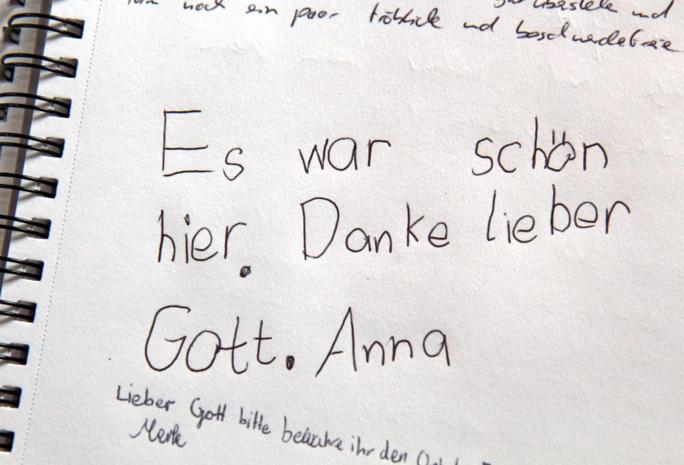 noch ein paar fröhliche und beschwerdefreie
Es war schön
hier. Danke lieber
Gott. Anna
Lieber Gott bitte bewahre ihr den
Merle